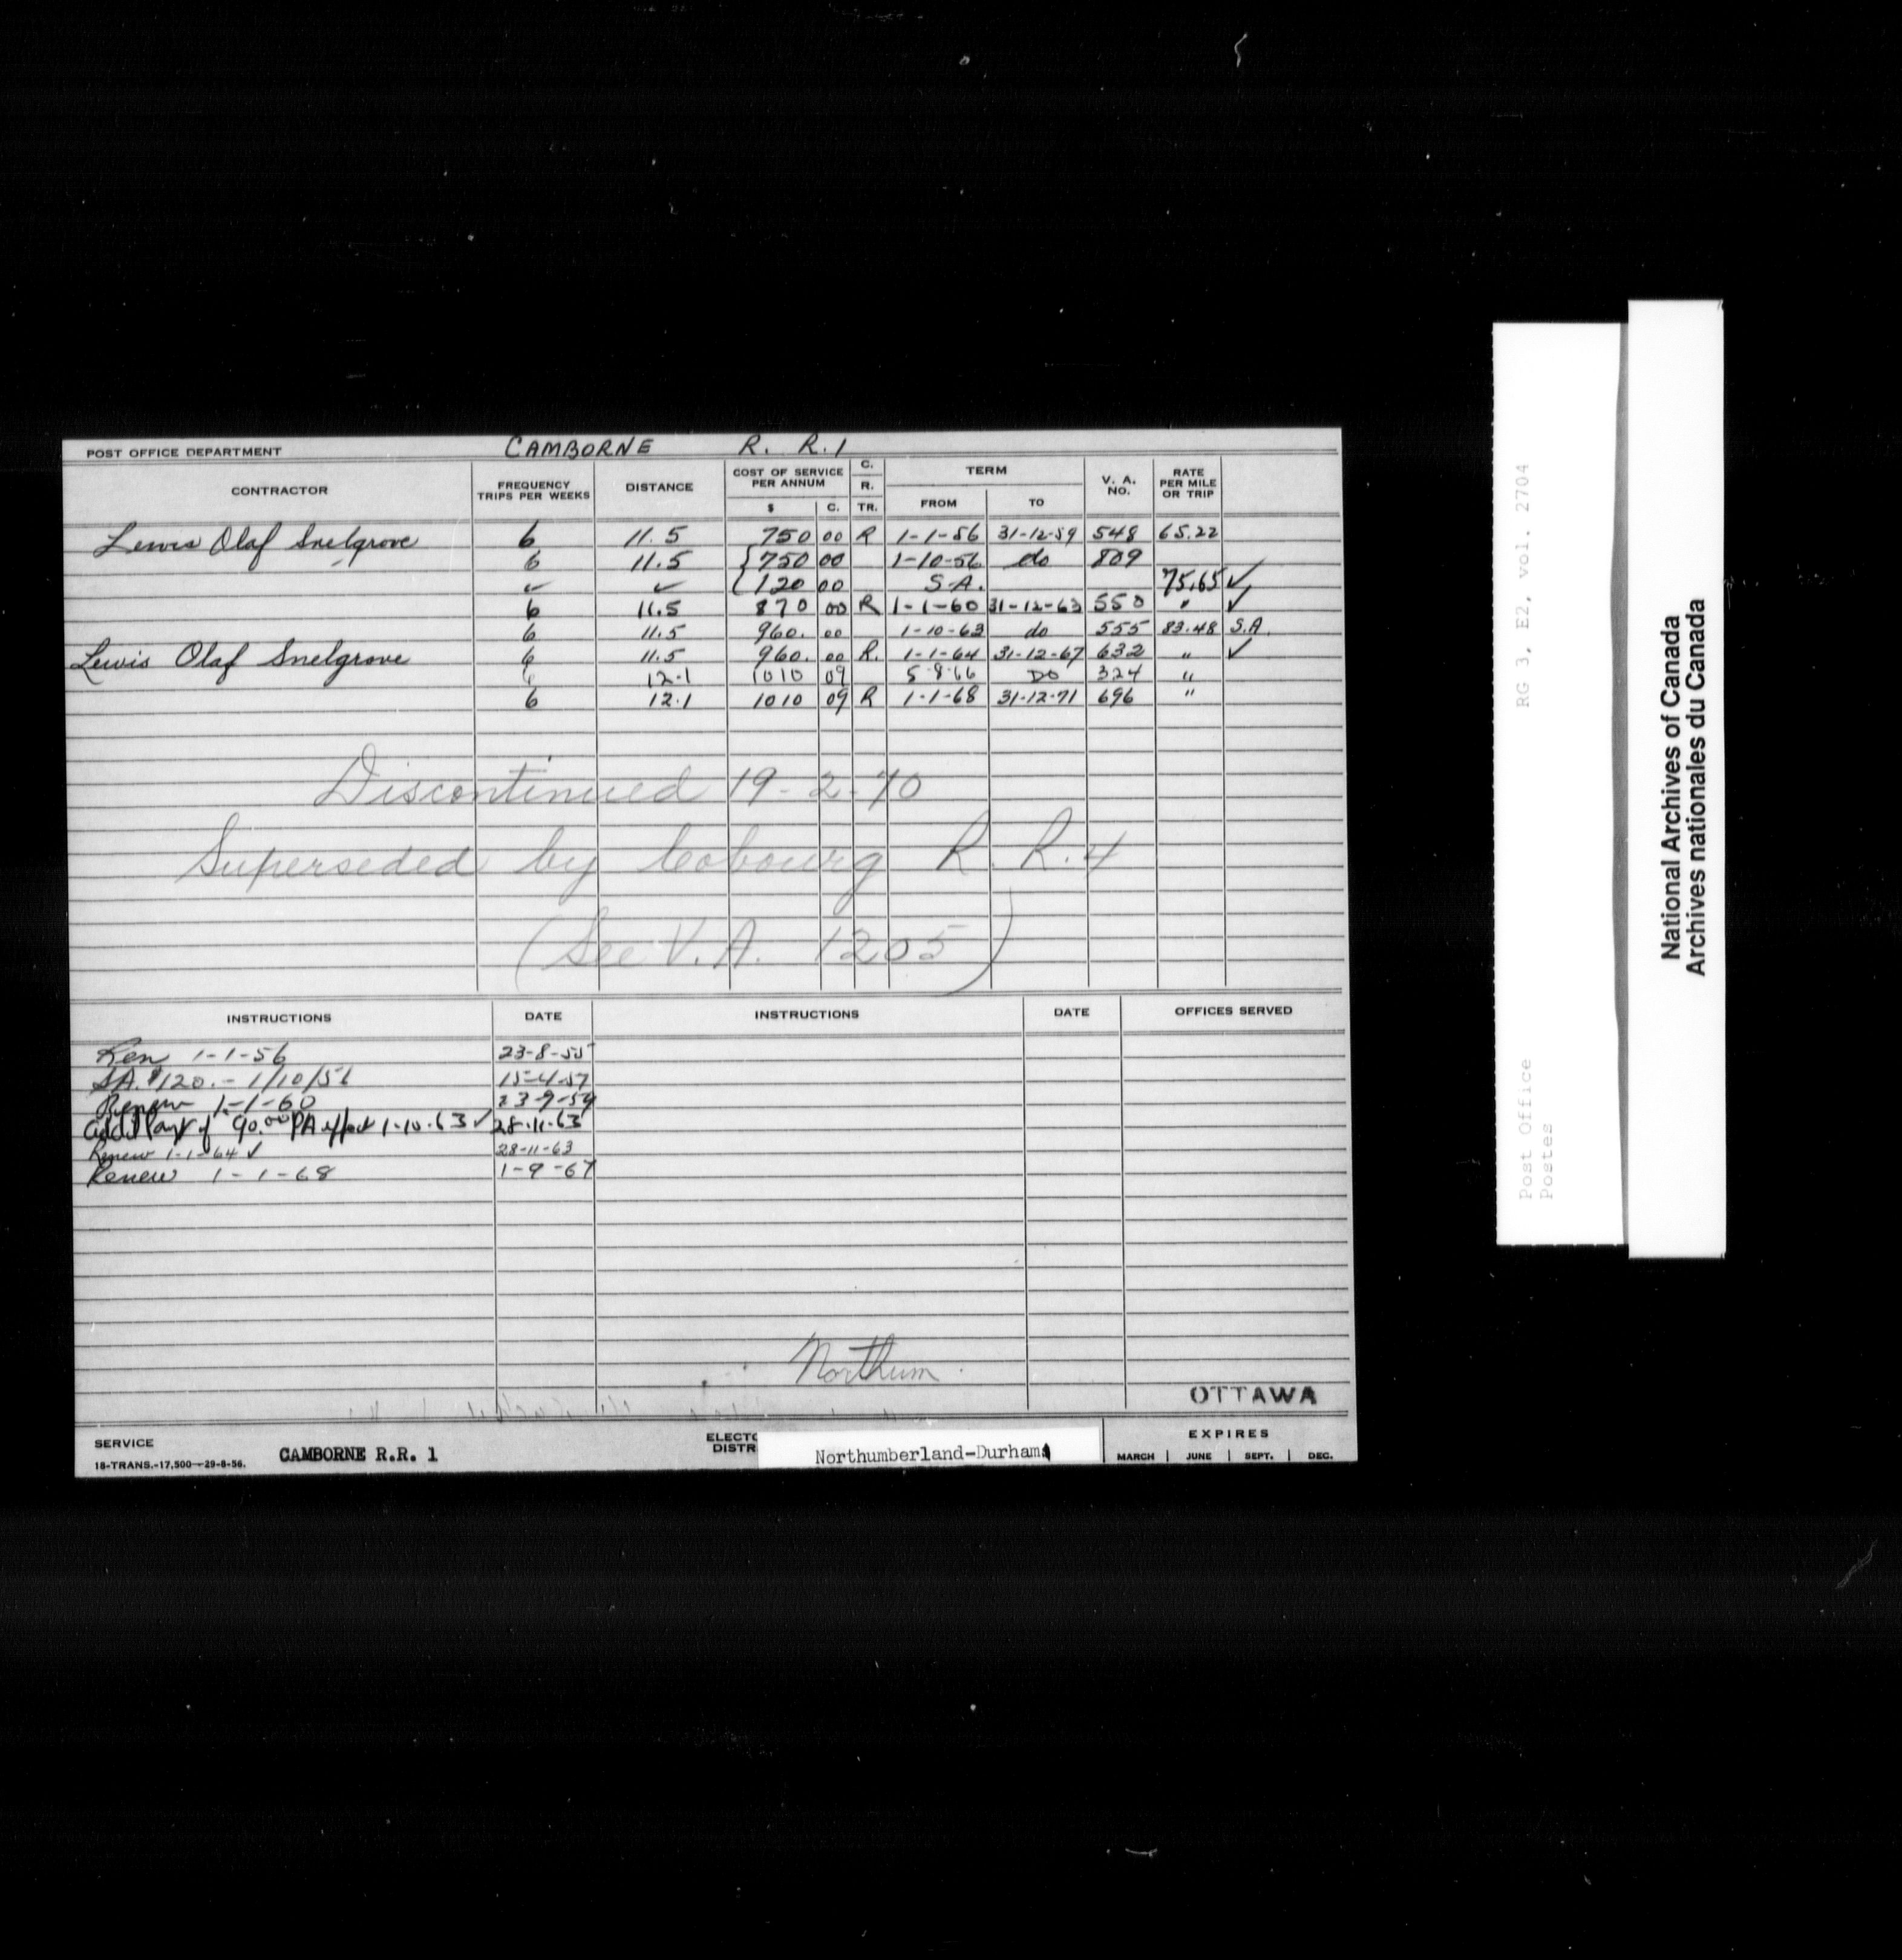 POST OFFICE DEPARTMENT CAMBORNE R. R. 1
CONTRACTOR FREQUENCY TRIPS PER WEEKS DISTANCE COST OF SERVICE PER ANNUM $ C. C. R. TR. TERM FROM TO V. A. NO. RATE PER MILE OR TRIP
Lewis Olaf Snelgrove 6 11.5 750 00 R 1-1-56 31-12-59 548 65.22
6 11.5 { 750 00 1-10-56 do 809
✓ ✓ { 120 00 S.A. 75.65 ✓
6 11.5 870 00 R 1-1-60 31-12-63 550 " ✓
6 11.5 960. 00 1-10-63 do 555 83.48 S.A.
Lewis Olaf Snelgrove 6 11.5 960. 00 R. 1-1-64 31-12-67 632 " ✓
6 12.1 1010 09 5-8-66 DO 324 "
6 12.1 1010 09 R 1-1-68 31-12-71 696 "
Discontinued 19-2-70
Superseded by Cobourg R. R. 4
(See V.A. 1205)
INSTRUCTIONS DATE INSTRUCTIONS DATE OFFICES SERVED
Ren 1-1-56 23-8-55
S.A. $120.- 1/10/56 15-4-57
Renew 1-1-60 23-9-59
Addl Payt of 90.00 PA effect 1-10-63 ✓ 28-11-63
Renew 1-1-64 ✓ 28-11-63
Renew 1-1-68 1-9-67
Northum.
OTTAWA
SERVICE CAMBORNE R.R. 1 ELECTO DISTR Northumberland-Durham EXPIRES
18-TRANS.-17,500-29-8-56. MARCH | JUNE | SEPT. | DEC.
RG 3, E2, vol. 2704
Post Office
Postes
National Archives of Canada
Archives nationales du Canada